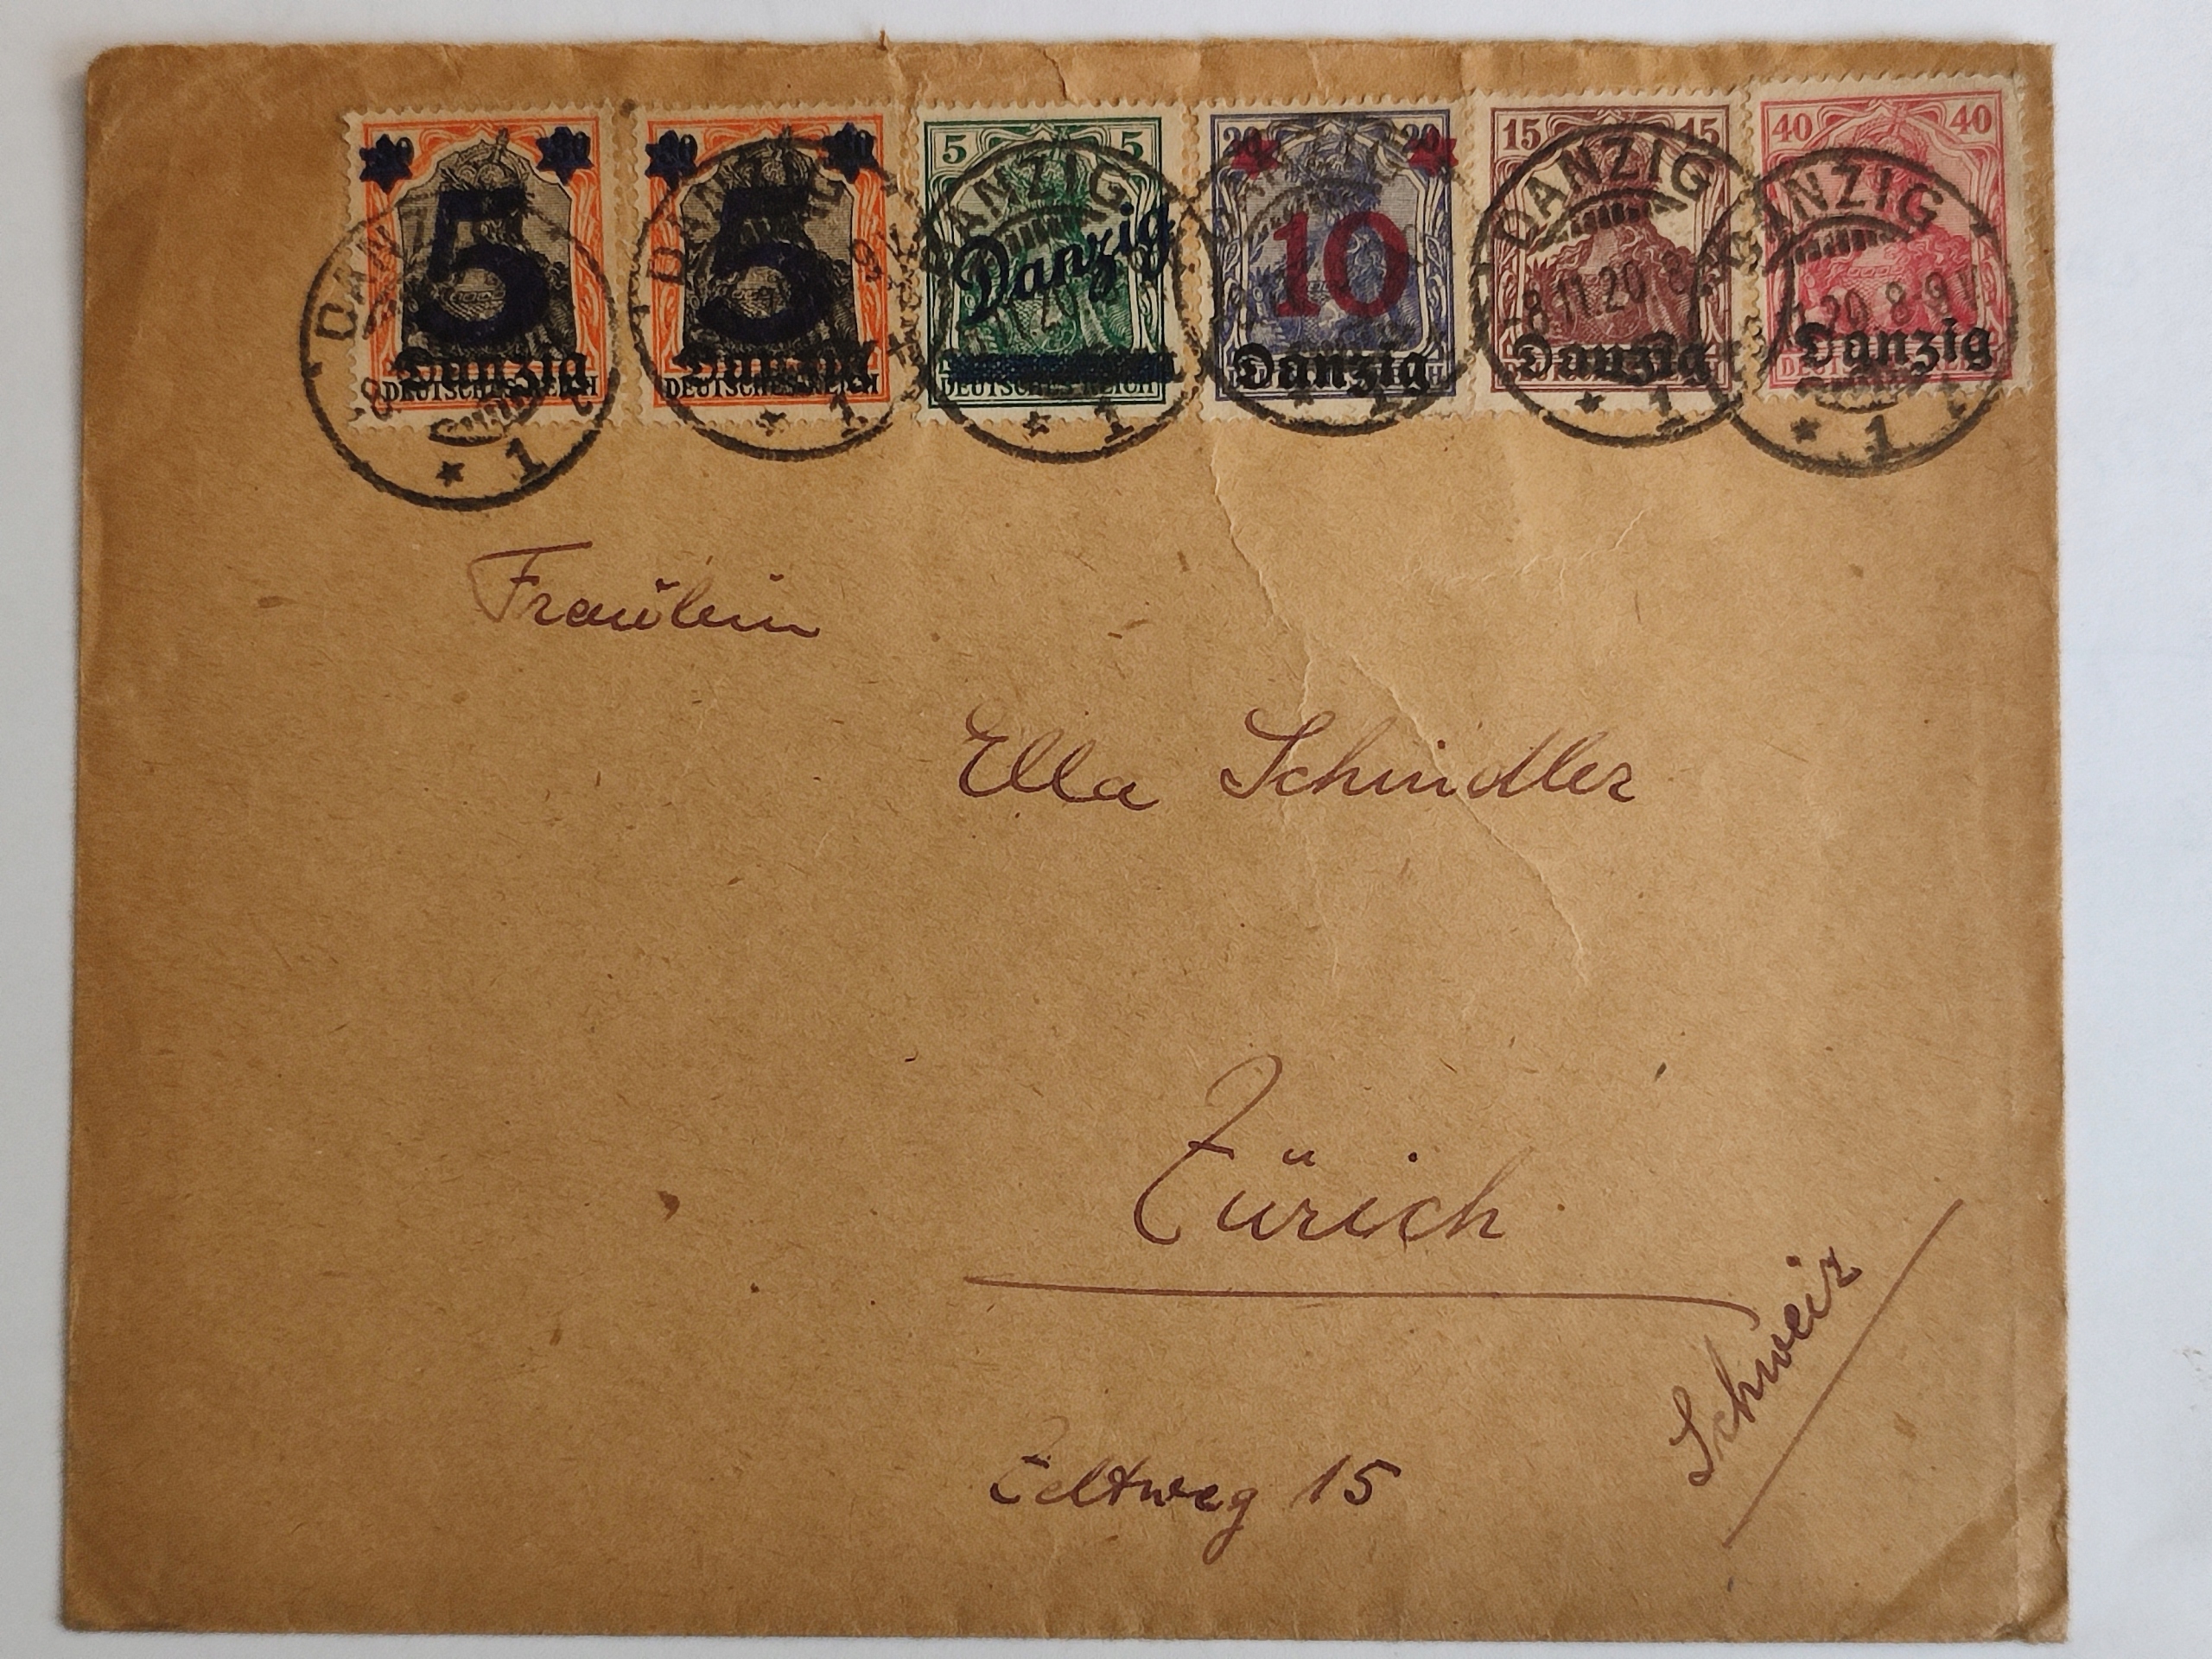 5
Danzig
DEUTSCHES REICH
5
Danzig
DEUTSCHES REICH
5 5
Danzig
DEUTSCHES REICH
20 20
10
Danzig
15 15
Danzig
40 40
Danzig
DANZIG
* 1
DANZIG
* 1
DANZIG
* 1
* 1
DANZIG
8.11.20.8
* 1
DANZIG
20.8-9V
* 1
Fraülein
Ella Schindler
Zürich
Schweiz
Zeltweg 15